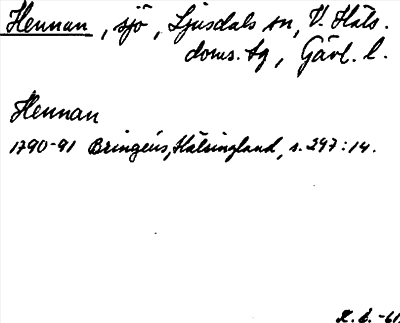 Hennan, sjö, Ljusdals sn, V. Häls.
doms. tg, Gävl. l.
Hennan
1790-91 Bringéus, Hälsingland, s. 297:14.
K. E. -61